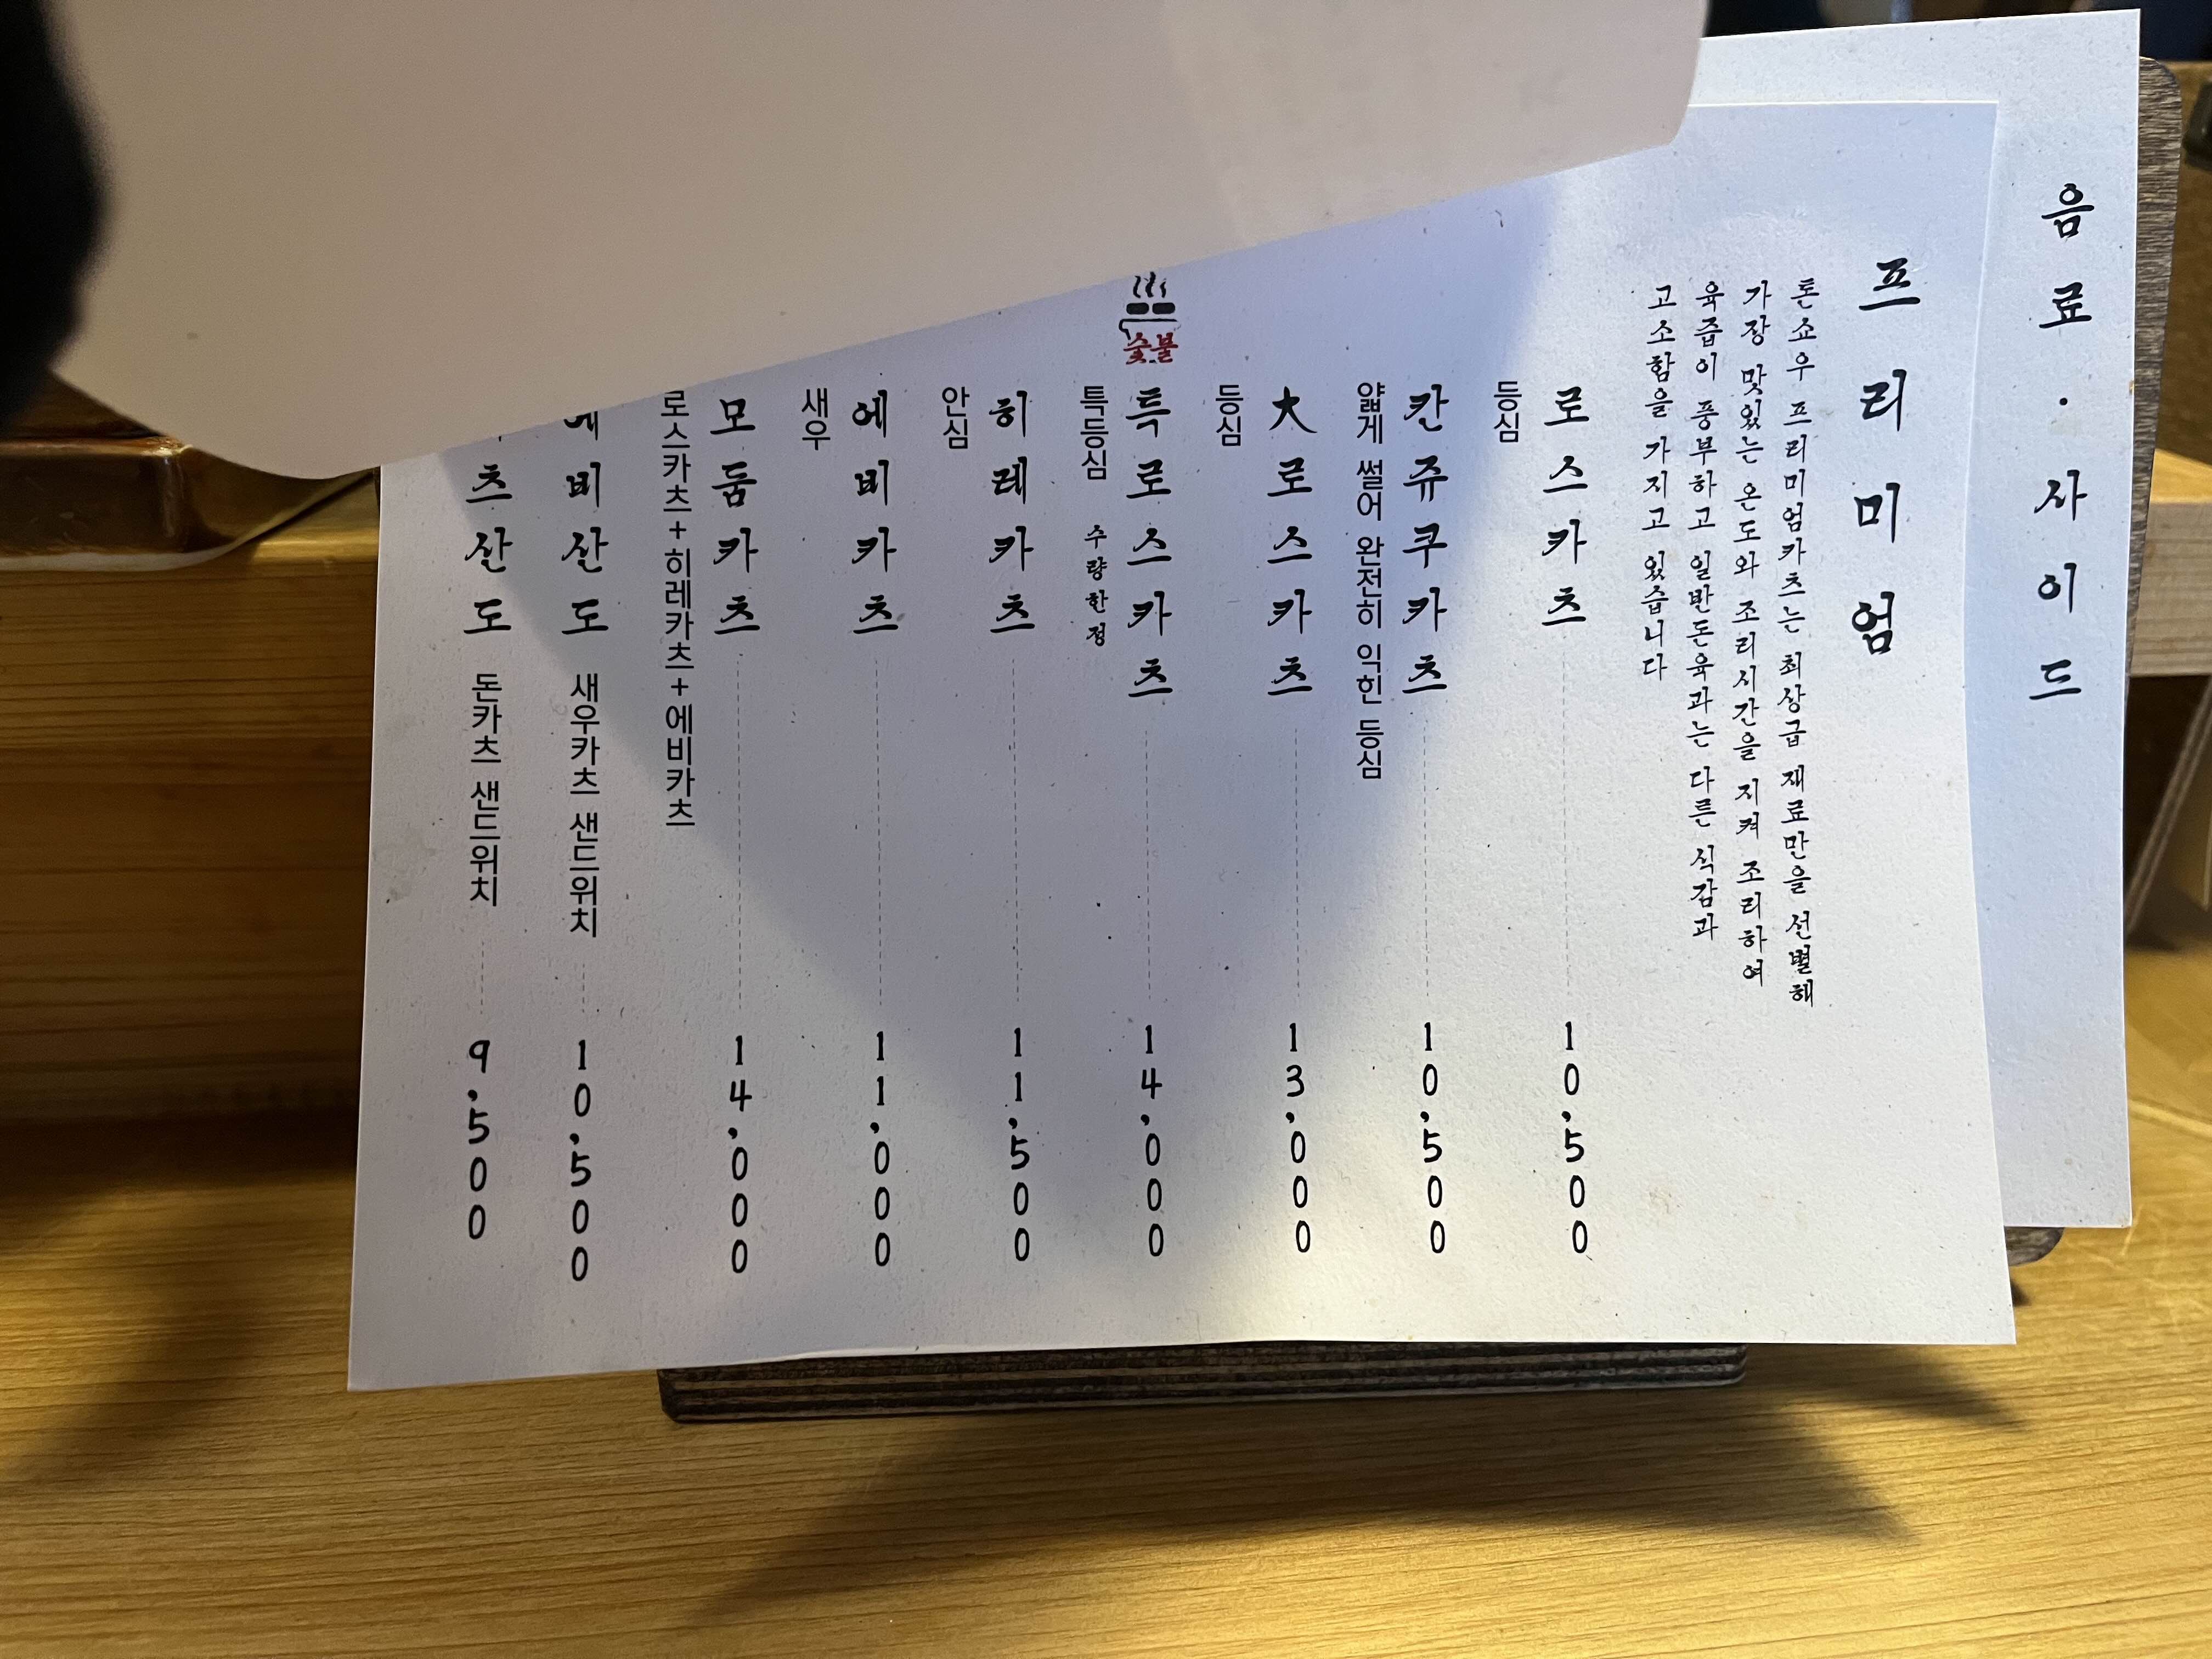 음료·사이드
프리미엄
톤쇼우 프리미엄카츠는 최상급 재료만을 선별해
가장 맛있는 온도와 조리시간을 지켜 조리하여
육즙이 풍부하고 일반돈육과는 다른 식감과
고소함을 가지고 있습니다
로스카츠 10,500
등심
칸쥬쿠카츠 10,500
얇게 썰어 완전히 익힌 등심
大로스카츠 13,000
등심
숯불
특로스카츠 14,000
특등심 수량한정
히레카츠 11,500
안심
에비카츠 11,000
새우
모둠카츠 14,000
로스카츠+히레카츠+에비카츠
에비산도 새우카츠 샌드위치 10,500
츠산도 돈카츠 샌드위치 9,500